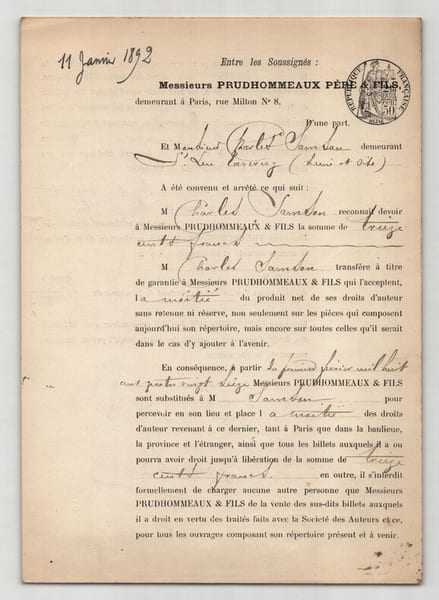 11 Janvier 1892
Entre les Soussignés :
Messieurs PRUDHOMMEAUX PÈRE & FILS,
demeurant à Paris, rue Milton No 8.
RÉPUBLIQUE FRANÇAISE
50
SEINE
D'une part.
Et Monsieur Charles Samson demeurant
St Leu Taverny (Seine et Oise)
A été convenu et arrêté ce qui suit :
M Charles Samson reconnait devoir
à Messieurs PRUDHOMMEAUX & FILS la somme de treize
cents francs
M Charles Samson transfère à titre
de garantie à Messieurs PRUDHOMMEAUX & FILS qui l'acceptent,
la moitié du produit net de ses droits d'auteur
sans retenue ni réserve, non seulement sur les pièces qui composent
aujourd'hui son répertoire, mais encore sur toutes celles qu'il serait
dans le cas d'y ajouter à l'avenir.
En conséquence, à partir du premier février mil huit
cent quatre vingt Messieurs PRUDHOMMEAUX & FILS
sont substitués à M Samson pour
percevoir en son lieu et place la moitié des droits
d'auteur revenant à ce dernier, tant à Paris que dans la banlieue,
la province et l'étranger, ainsi que tous les billets auxquels il a ou
pourra avoir droit jusqu'à libération de la somme de treize
cents francs en outre, il s'interdit
formellement de charger aucune autre personne que Messieurs
PRUDHOMMEAUX & FILS de la vente des sus-dits billets auxquels
il a droit en vertu des traités faits avec la Société des Auteurs et ce,
pour tous les ouvrages composant son répertoire présent et à venir.